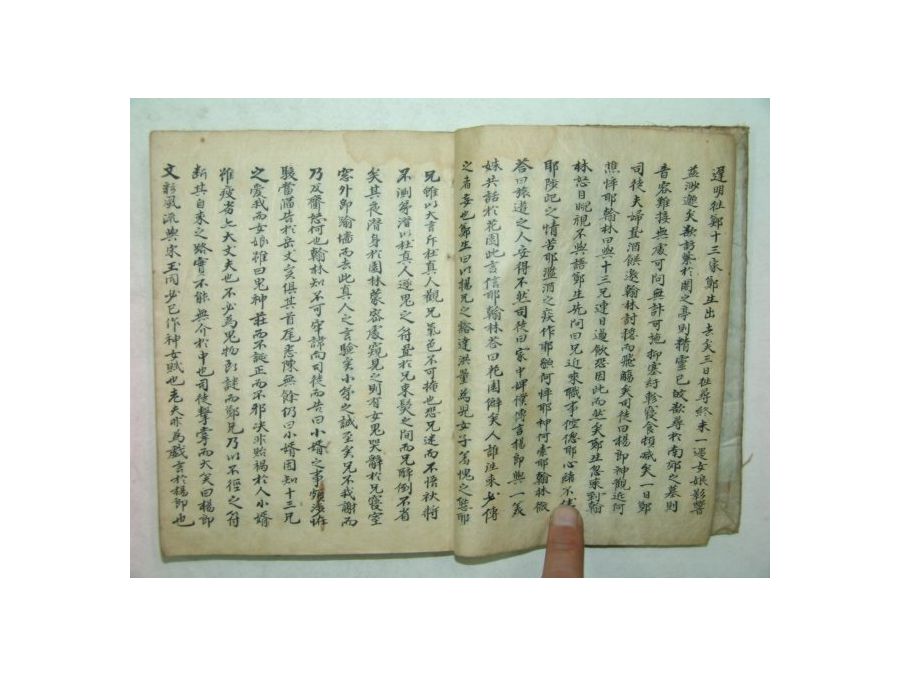 遲明往鄭十三家鄭生出去矣三日往尋終未一遇女娘影響
益渺邈矣欲訪紫於閣之亭則精靈已散欲尋於南郊之墓則
音容難接無處可問無計可施抑塞紆軫寢食頓減矣一日鄭
司徒夫婦置酒饌邀翰林討穩而飛觴矣司徒曰楊郎神觀近何
憔悴耶翰林曰與十三兄連日過飲恐因此而然矣鄭生忽來到翰
林怒目睨視不與語鄭生先問曰兄近來職事倥偬耶心緒不佳
耶陟屺之情苦耶濫酒之疾作耶貌何悴耶神何索耶翰林微
答曰旅遊之人安得不然司徒曰家中婢僕傳言楊郎與一美
姝共話於花園此言信耶翰林答曰花園僻矣人誰往來必傳
之者妄也鄭生曰以楊兄之豁達洪量為兒女子羞愧之態耶
兄雖以大言斥杜真人觀兄氣色不可掩也恐兄迷而不悟禍將
不測弟潛以杜真人逐鬼之符置於兄束髮之間而兄醉倒不省
矣其夜潛身於園林蒙密處窺見之則有女鬼哭辭於兄寢室
窓外即踰墻而去此真人之言驗矣小弟之誠至矣兄不我謝而
乃反齎怒何也翰林知不可牢諱向司徒而告曰小婿之事頗涉
駭當備告於岳丈矣俱其首尾悉陳無餘仍曰小婿固知十三兄
之愛我而女娘雖曰鬼神莊而不誕正而不邪決非貽禍於人小婿
雖疲劣亦大丈夫也不必為鬼物所誣而鄭兄乃以不經之符
斷其自來之路實不能無介於中也司徒擊掌而大笑曰楊郎
文彩風流與宋玉同必已作神女賦也老夫非為戲言於楊郎也